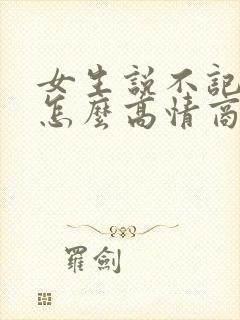 女生說不記
怎麼高情商
羅劍